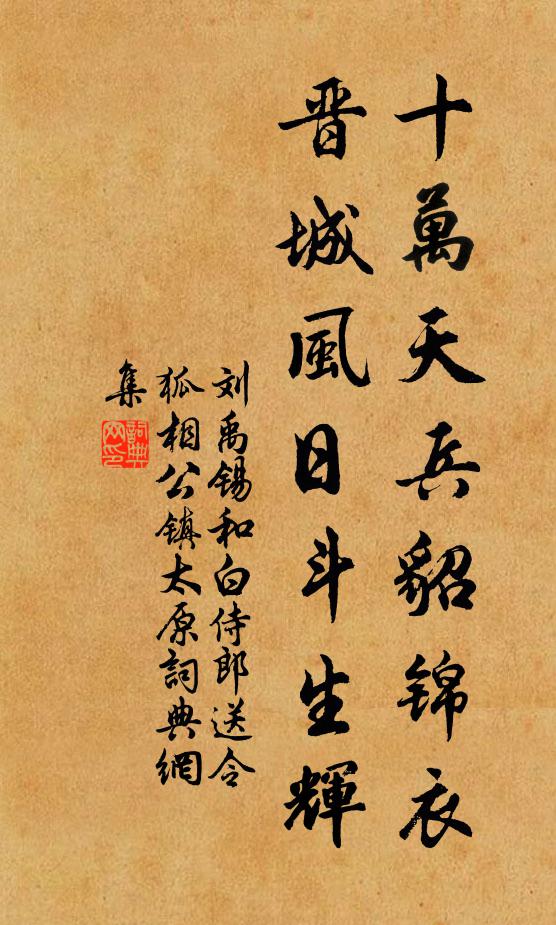 十萬天兵貂錦衣
晋城風日斗生輝
刘禹锡和白侍郎送令
狐相公镇太原詞典網
集
詞典網印